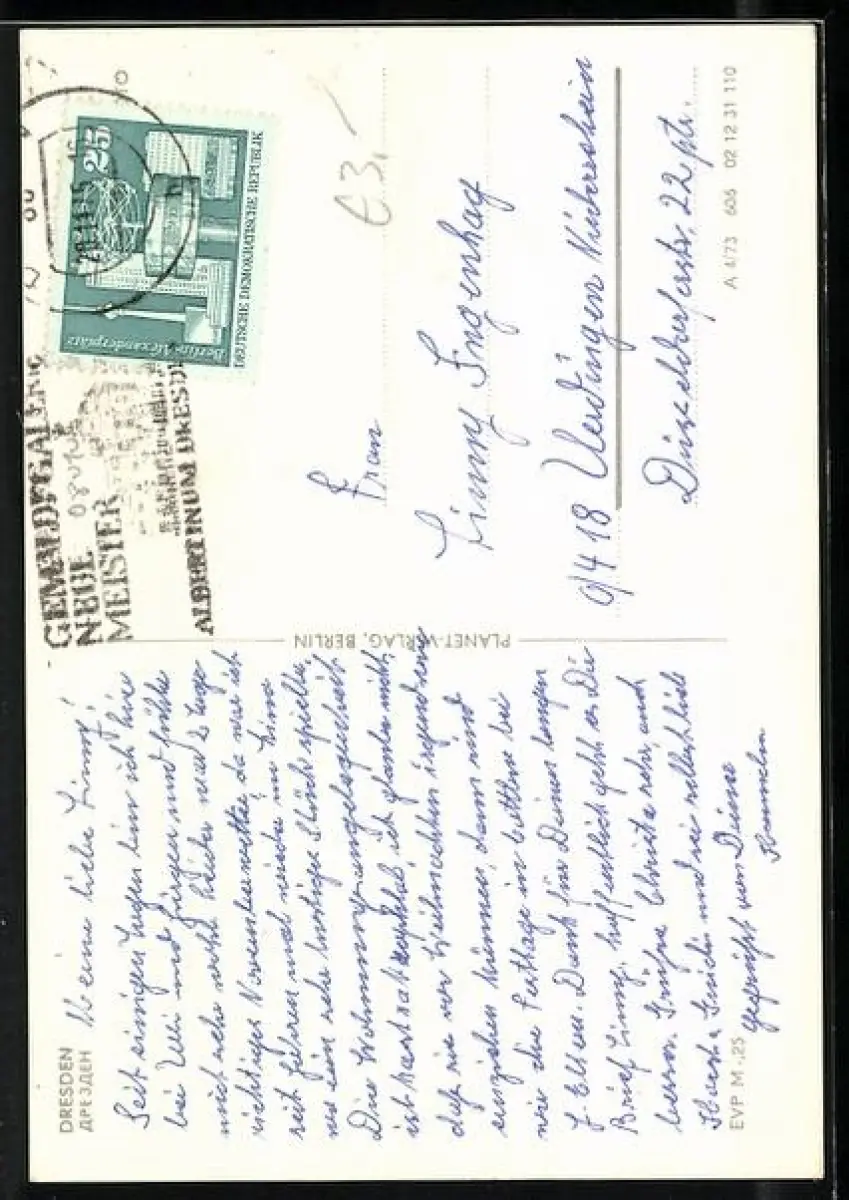 DRESDEN
ДРЕЗДЕН
Meine liebe Linny!
Seit einigen Tagen bin ich hier
bei und Jürgen und fühle
mich sehr wohl. war 2 Tage
richtiges Novemberwetter, da war ich
seit Jahren mal wieder im Kino
wo ein sehr lustiges Stück spielte.
Die Wohnungsangelegenheit
ist ich glaube nicht,
daß sie vor Weihnachten irgendwann
einziehen können, dann sind
wir die Festtage in bei
J. Eltern. Dank für Deinen langen
Brief Linny, hoffentlich geht es Dir
besser. Grüße Christa sehr, und
und sei selbst herzlich
gegrüßt von Deiner
EVP M -,25
PLANET-VERLAG, BERLIN
GEMÄLDEGALERIE
NEUE
MEISTER
ALBERTINUM DRESDEN
25
Berlin-Alexanderplatz
DEUTSCHE DEMOKRATISCHE REPUBLIK
€3,-
Frau
Linny Ingenhag
D/418 Uerdingen Niederrhein
Düsseldorferstr. 22 ptr.
A 4/73 606 02 12 31 110